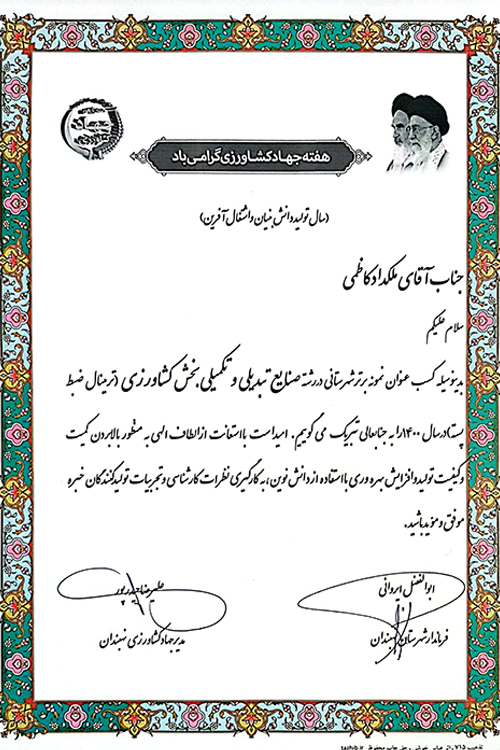 هفته جهاد کشاورزی گرامی باد
(سال تولید، دانش بنیان و اشتغال آفرین)
جناب آقای ملکداد کاظمی
سلام علیکم
بدینوسیله کسب عنوان نمونه برتر شهرستانی در رشته صنایع تبدیلی و تکمیلی بخش کشاورزی (ترمینال ضبط
پسته) در سال ۱۴۰۰ را به جنابعالی تبریک می گویم. امید است با استعانت از الطاف الهی به منظور بالا بردن کمیت
و کیفیت تولید و افزایش بهره وری با استفاده از دانش نوین، به کارگیری نظرات کارشناسی و تجربیات تولیدکنندگان خبره
موفق و مؤید باشید.
ابوالفضل ایردانی
فرماندار شهرستان نهبندان
علیرضا حیدرپور
مدیر جهاد کشاورزی نهبندان
tazhib.ir